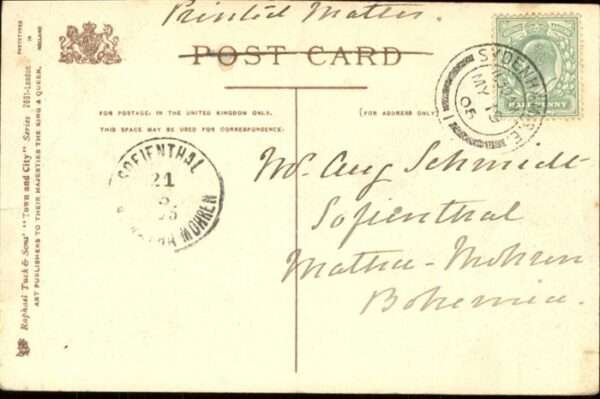 Printed Matter.
POST CARD
PHOTOTYPED IN HOLLAND
FOR POSTAGE: IN THE UNITED KINGDOM ONLY,
THIS SPACE MAY BE USED FOR CORRESPONDENCE:
(FOR ADDRESS ONLY.)
Raphael Tuck & Sons' "Town and City" Series 2001-London
ART PUBLISHERS TO THEIR MAJESTIES THE KING & QUEEN.
HALF PENNY
SYDENHAM S.E.
MY 19
05
SOFIENTHAL
21
5
05
MOHREN
Mr. Aug Schmidt
Sofienthal
Mohren
Bohemia.